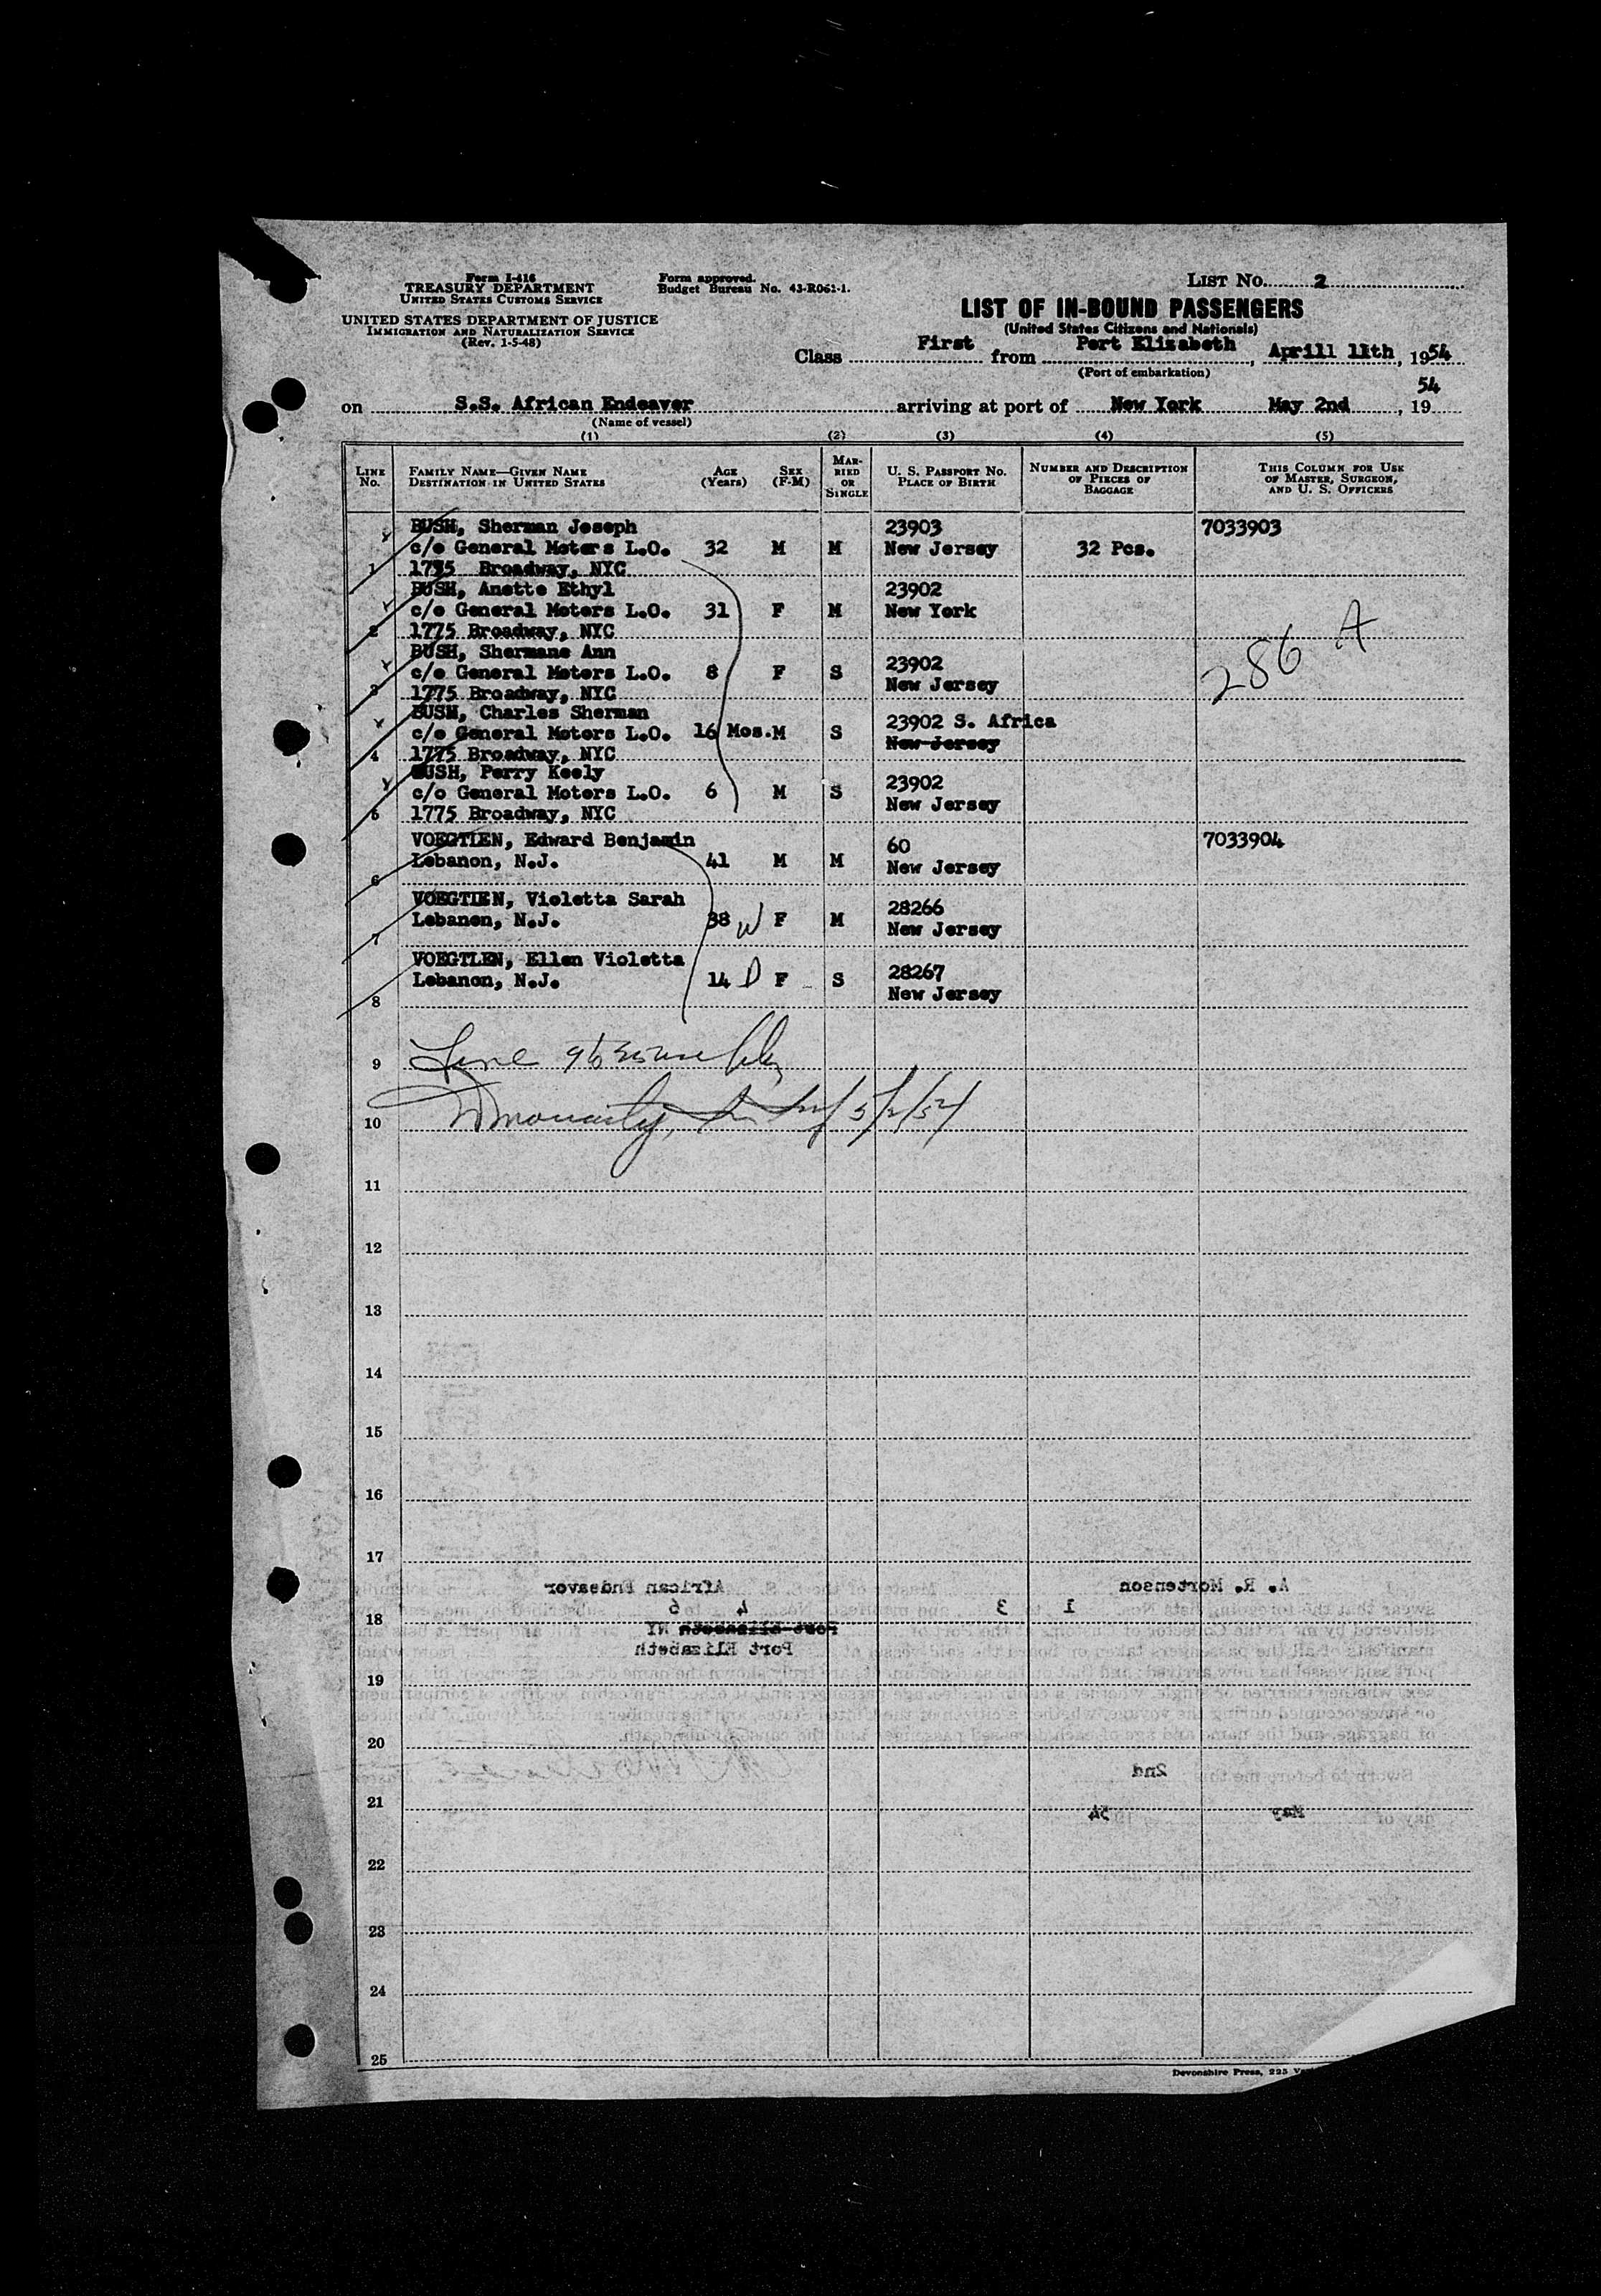 Form I-416
TREASURY DEPARTMENT
UNITED STATES CUSTOMS SERVICE
UNITED STATES DEPARTMENT OF JUSTICE
IMMIGRATION AND NATURALIZATION SERVICE
(Rev. 1-5-48)
Form approved.
Budget Bureau No. 43-R061-1.
LIST No. 2
LIST OF IN-BOUND PASSENGERS
(United States Citizens and Nationals)
Class First from Port Elizabeth, Aprill 11th, 1954
(Port of embarkation)
54
on S.S. African Endeavor arriving at port of New York May 2nd, 19
(Name of vessel)
(1) (2) (3) (4) (5)
LINE No. FAMILY NAME—GIVEN NAME DESTINATION IN UNITED STATES AGE (Years) SEX (F-M) MARRIED OR SINGLE U. S. PASSPORT No. PLACE OF BIRTH NUMBER AND DESCRIPTION OF PIECES OF BAGGAGE THIS COLUMN FOR USE OF MASTER, SURGEON, AND U. S. OFFICERS
BUSH, Sherman Joseph 23903 7033903
c/o General Motors L.O. 32 M M New Jersey 32 Pcs.
1 1775 Broadway, NYC
BUSH, Anette Ethyl 23902
c/o General Motors L.O. 31 F M New York
2 1775 Broadway, NYC
BUSH, Shermane Ann 23902
c/o General Motors L.O. 8 F S New Jersey
3 1775 Broadway, NYC
286 A
BUSH, Charles Sherman 23902 S. Africa
c/o General Motors L.O. 16 Mos. M S New Jersey
4 1775 Broadway, NYC
BUSH, Perry Keely 23902
c/o General Motors L.O. 6 M S New Jersey
5 1775 Broadway, NYC
VOEGTLEN, Edward Benjamin 60 7033904
Lebanon, N.J. 41 M M New Jersey
6
VOEGTLEN, Violetta Sarah 28266
Lebanon, N.J. 38 W F M New Jersey
7
VOEGTLEN, Ellen Violetta 28267
Lebanon, N.J. 14 D F S New Jersey
8
9 Line
10 5/2/54
11
12
13
14
15
16
17
African Endeavor A. R. Mortenson
18 1 3 4 6
Port Elizabeth NY
Port Elizabeth
19
20
2nd
21
May 54
22
23
24
25
Devonshire Press, 225